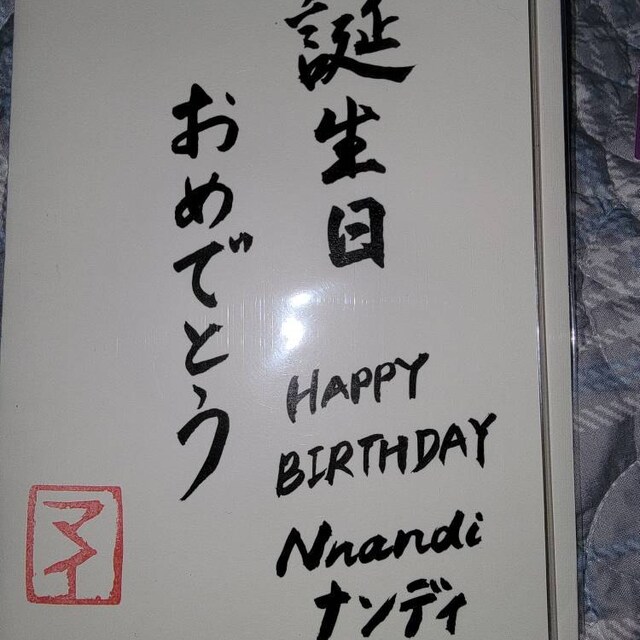 誕生日
おめでとう
HAPPY
BIRTHDAY
Nnandi
ナンディ
マイ